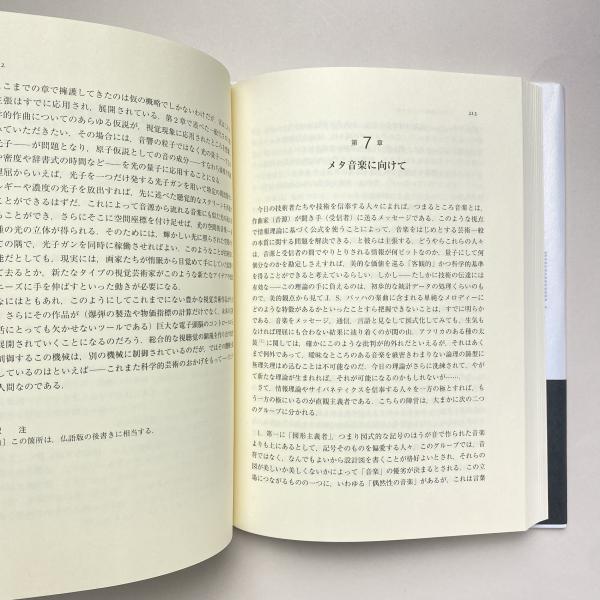 ここまでの章で擁護してきたのは仮の概略でしかないわけだが
張はすでに応用され，展開されている．第2章で述べた一般
的作曲についてのあらゆる仮説が，視覚現象に応用されたところ
ていただきたい．その場合には，音響の粒子ではなく光の粒子
光子――が問題となり，原子仮説としての音の成分――すなわち
や密度や辞書式の時間など――を光の量子に応用することになる
理屈からいえば，光子を一つだけ発する光子ガンを用いて特定の
ルギーや濃度の光子を放出すれば，先に述べた聴覚的なスクリーン
ことができるはずだ．これによって音源から流れる音楽にも似た
ることができ，さらにそこに空間座標を付け足せば，光の空間
種の光の立体が得られる．そのためには，輝かしい光に照らされた空間
ての隅で，光子ガンを同時に稼働させればよい．このようなことが
能だとしても，現実には，画家たちが惰眠から目覚めて手にしていた
て去るとか，新たなタイプの視覚芸術家がこのような新たなアイデア
ニーズに手を伸ばすといった動きが必要になる．
なにはともあれ，このようにしてこれまでにない豊かな視聴
，さらにその作品が（爆弾の製造や物価指標の計算だけでなく，
活にとっても欠かせないツールである）巨大な電子頭脳のコントロール
されていくことになるのだろう．総合的な視聴覚の顕現を作り出
制御するこの機械は，別の機械に制御されているのだが，ではその
しているのはといえば――これまた科学的芸術のおかげをもって――
人間なのである．
訳 注
この箇所は，仏語版の後書きに相当する．
213
第 7 章
メタ音楽に向けて
今日の技術者たちや技術を信奉する人々によれば，つまるところ音楽とは，
作曲家（音源）が聞き手（受信者）に送るメッセージである．このような視点
で情報理論に基づく公式を使うことによって，音楽をはじめとする芸術一般
の本質に関する問題を解決できる，と彼らは主張する．どうやらこれらの人々
は，音源と受信者の間でやりとりされる情報が何ビットなのか，量子にして何
個分なのかを勘定しさえすれば，美的な価値を巡る「客観的」かつ科学的基準
を得ることができると考えているらしい．しかし――たしかに技術の伝達には
有効な――この理論の手に負えるのは，初歩的な統計データの処理くらいのも
ので，美的観点から見てJ. S. バッハの楽曲に含まれる単純なメロディーにど
のような特徴があるかといったことすら把握できないことは，すでに明らか
である．音楽をメッセージ，通信，言語と見なして図式化してみても，生気も
なければ理屈にも合わない結果に辿り着くのが関の山．アフリカのある種の太
鼓に関しては，確かにこのような批判が的外れだといえるが，それはあく
まで例外であって，曖昧なところのある音楽を厳密きわまりない論理の鋳型に
無理矢理はめ込むことは不可能なのだ．今日の理論がさらに洗練されて，やが
て新たな理論が生まれれば，それが可能になるのかもしれないが……．
さて，情報理論やサイバネティクスを信奉する人々を一方の極とすれば，も
う一方の極にいるのが直観主義者である．こちらの陣営は，大まかに次の二つ
のグループに分かれる．
1. 第一に「図形主義者」，つまり図式的な記号のほうが音で作られた音楽
よりも上にあるとして，記号そのものを偏愛する人々．このグループでは，音
符ではなく，なんでもよいから設計図を書くことが格好よいとされ，それらの
図が美しいか美しくないかによって「音楽」の優劣が決まるとされる．この立
場につながるものの一つに，いわゆる「偶然性の音楽」があるが，これは言葉